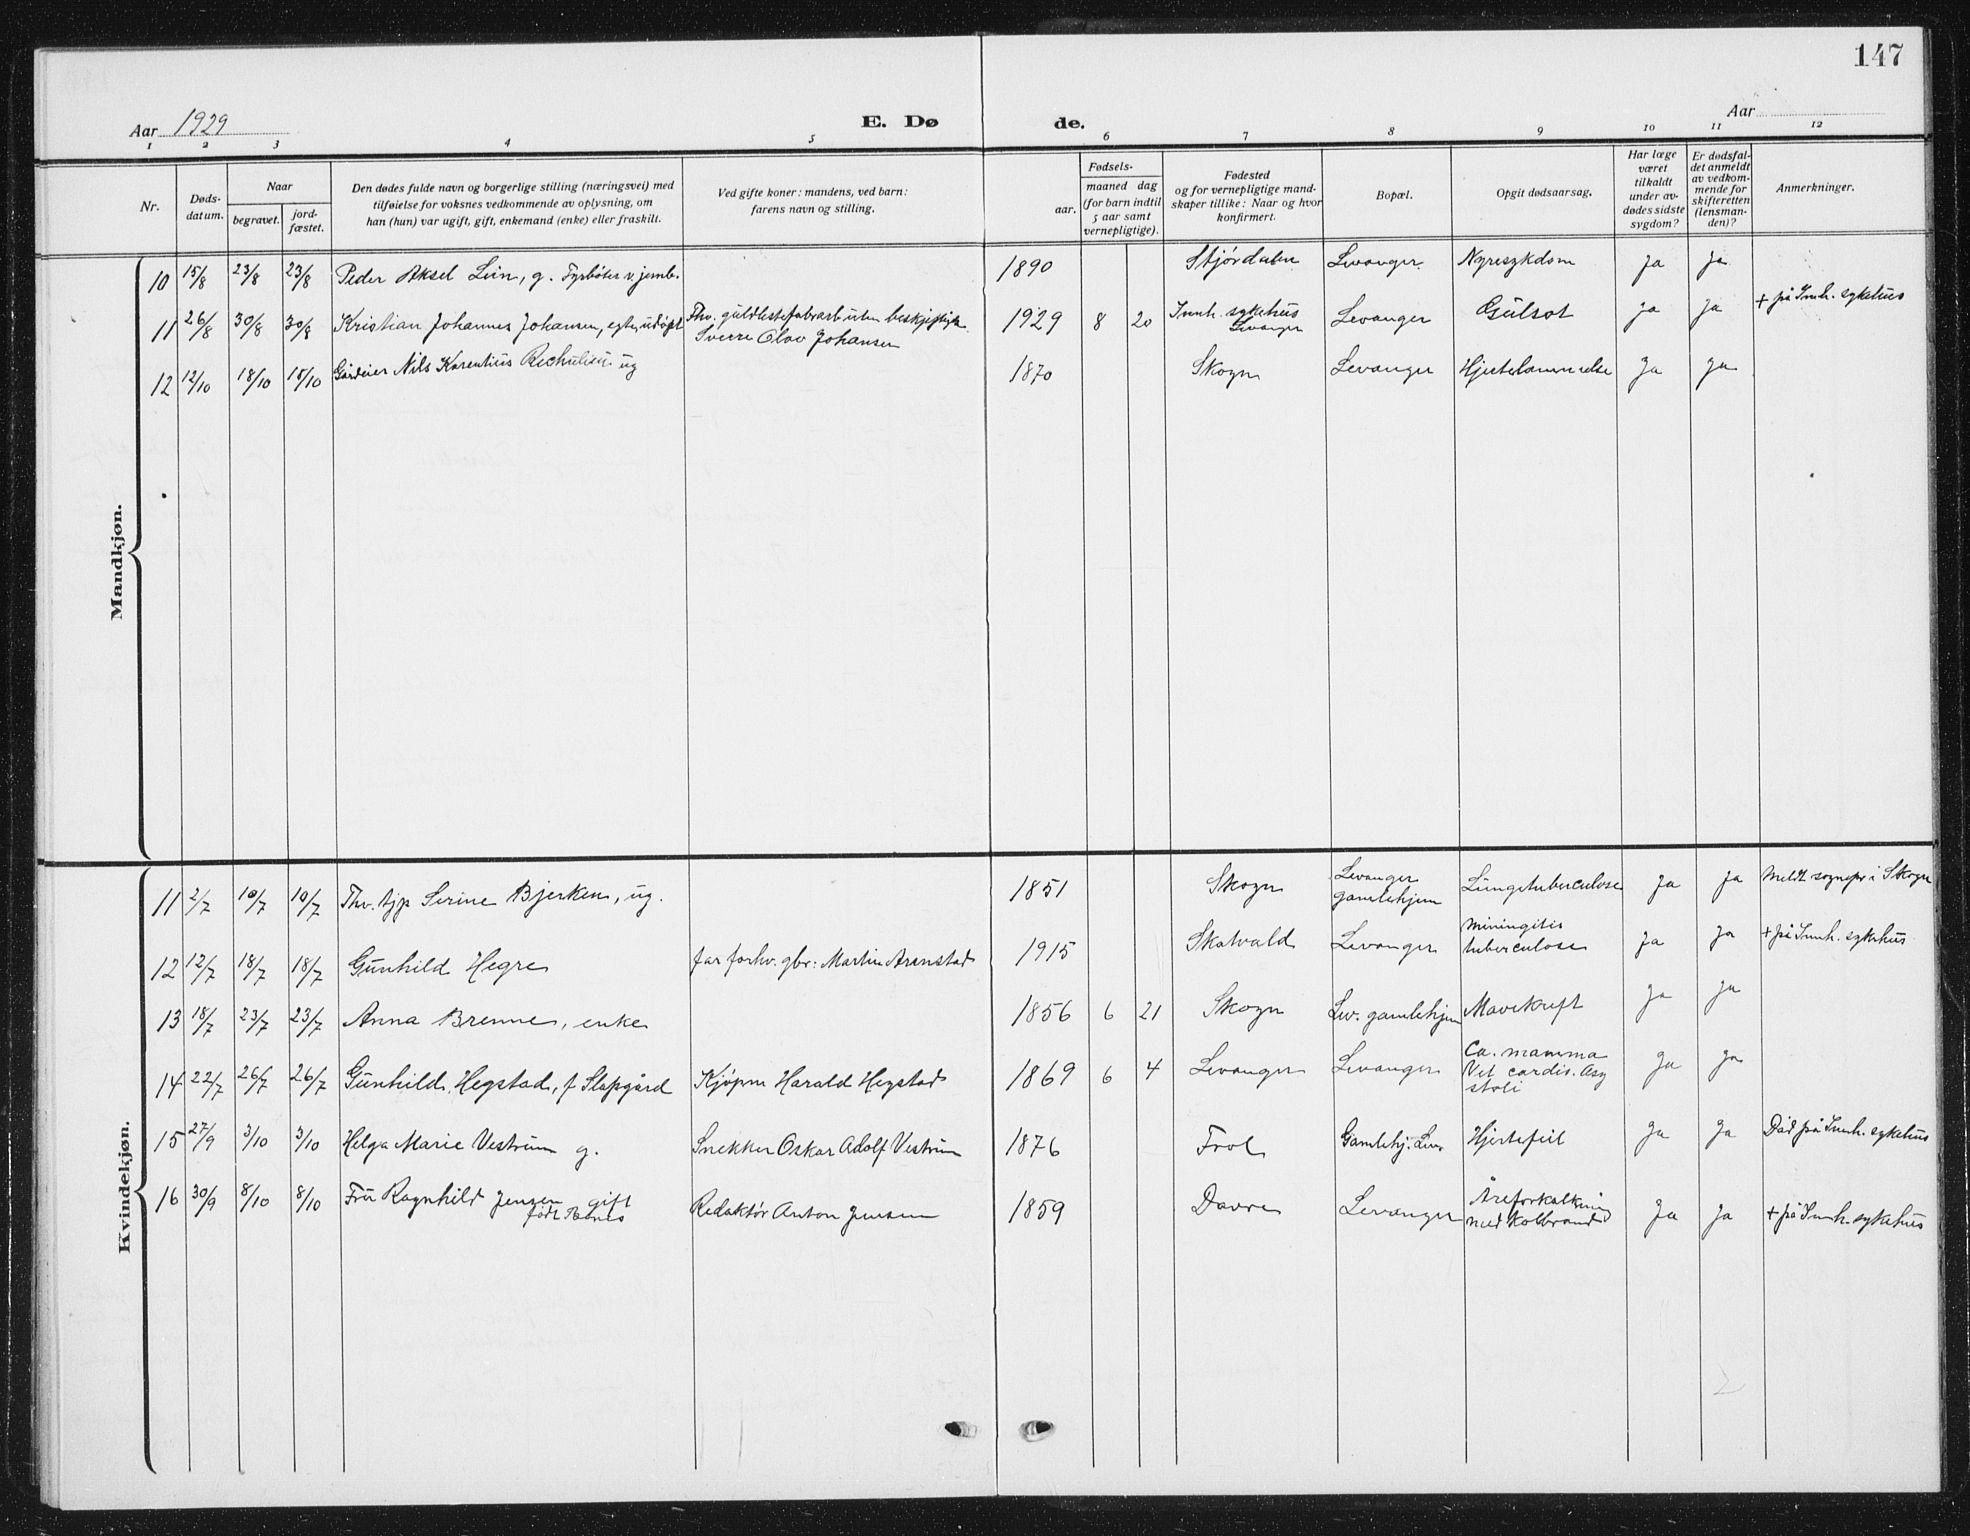 147
Aar 1929
E. Dø
de.
Aar
1 2 3 4 5 6 7 8 9 10 11 12
Nr.
Døds-
datum.
Naar
begravet.
jord-
fæstet.
Den dødes fulde navn og borgerlige stilling (næringsvei) med
tilføielse for voksnes vedkommende av oplysning, om
han (hun) var ugift, gift, enkemand (enke) eller fraskilt.
Ved gifte koner: mandens, ved barn:
farens navn og stilling.
Fødsels-
aar.
maaned dag
(for barn indtil
5 aar samt
vernepligtige).
Fødested
og for vernepligtige mand-
skaper tillike: Naar og hvor
konfirmert.
Bopæl.
Opgit dødsaarsag.
Har læge
været
tilkaldt
under av-
dødes sidste
sygdom?
Er dødsfal-
det anmeldt
av vedkom-
mende for
skifteretten
(lensman-
den)?
Anmerkninger.
Mandkjøn.
10 15/8 23/8 23/8 Peder Aksel Lein, g. Fyrbøter v. jernb. 1890 Stjørdalen Levanger Nyresykdom Ja Ja
11 26/8 30/8 30/8 Kristian Johannes Johansen, egte, udøpt Thv. guldlistefabrarb uten beskjeftigk.
Sverre Olav Johansen 1929 8 20 Innh. sykehus
Levanger Levanger Gulsot Ja Ja + på Innh. sykehus
12 12/10 18/10 15/10 Gårdeier Nils Karentius ug 1870 Skogn Levanger Hjertelammelse Ja Ja
Kvindekjøn.
11 2/7 10/7 10/7 Thv. tjp Serine Bjerken, ug. 1851 Skogn Levanger
gamlehjem Lungetuberculose Ja Ja Meldt sognepr i Skogn
12 12/7 18/7 18/7 Gunhild Hegre far forhv. gbr: Martin Arenstad 1915 Skatvald Levanger Miningitis
tuberculose Ja Ja + på Innh. sykehus
13 18/7 23/7 23/7 Anna Brenne, enke 1856 6 21 Skogn Lev. gamlehjem Mavekreft Ja Ja
14 22/7 26/7 26/7 Gunhild Hegstad, f Slapgård Kjøpm Harald Hegstad 1869 6 4 Levanger Levanger Ca. mamma
Vit cardis. Asy
stoli Ja Ja
15 27/9 3/10 3/10 Helga Marie Vestrum g. Snekker Oskar Adolf Vestrum 1876 Frol Gamlehj. Lev. Hjertefeil Ja Ja Død på Innh. sykehus
16 30/9 8/10 8/10 Fru Ragnhild Jensen gift
født Redaktør Anton Jensen 1859 Dovre Levanger Åreforkalkning
med Kolbrand Ja Ja + på Innh. sykehus